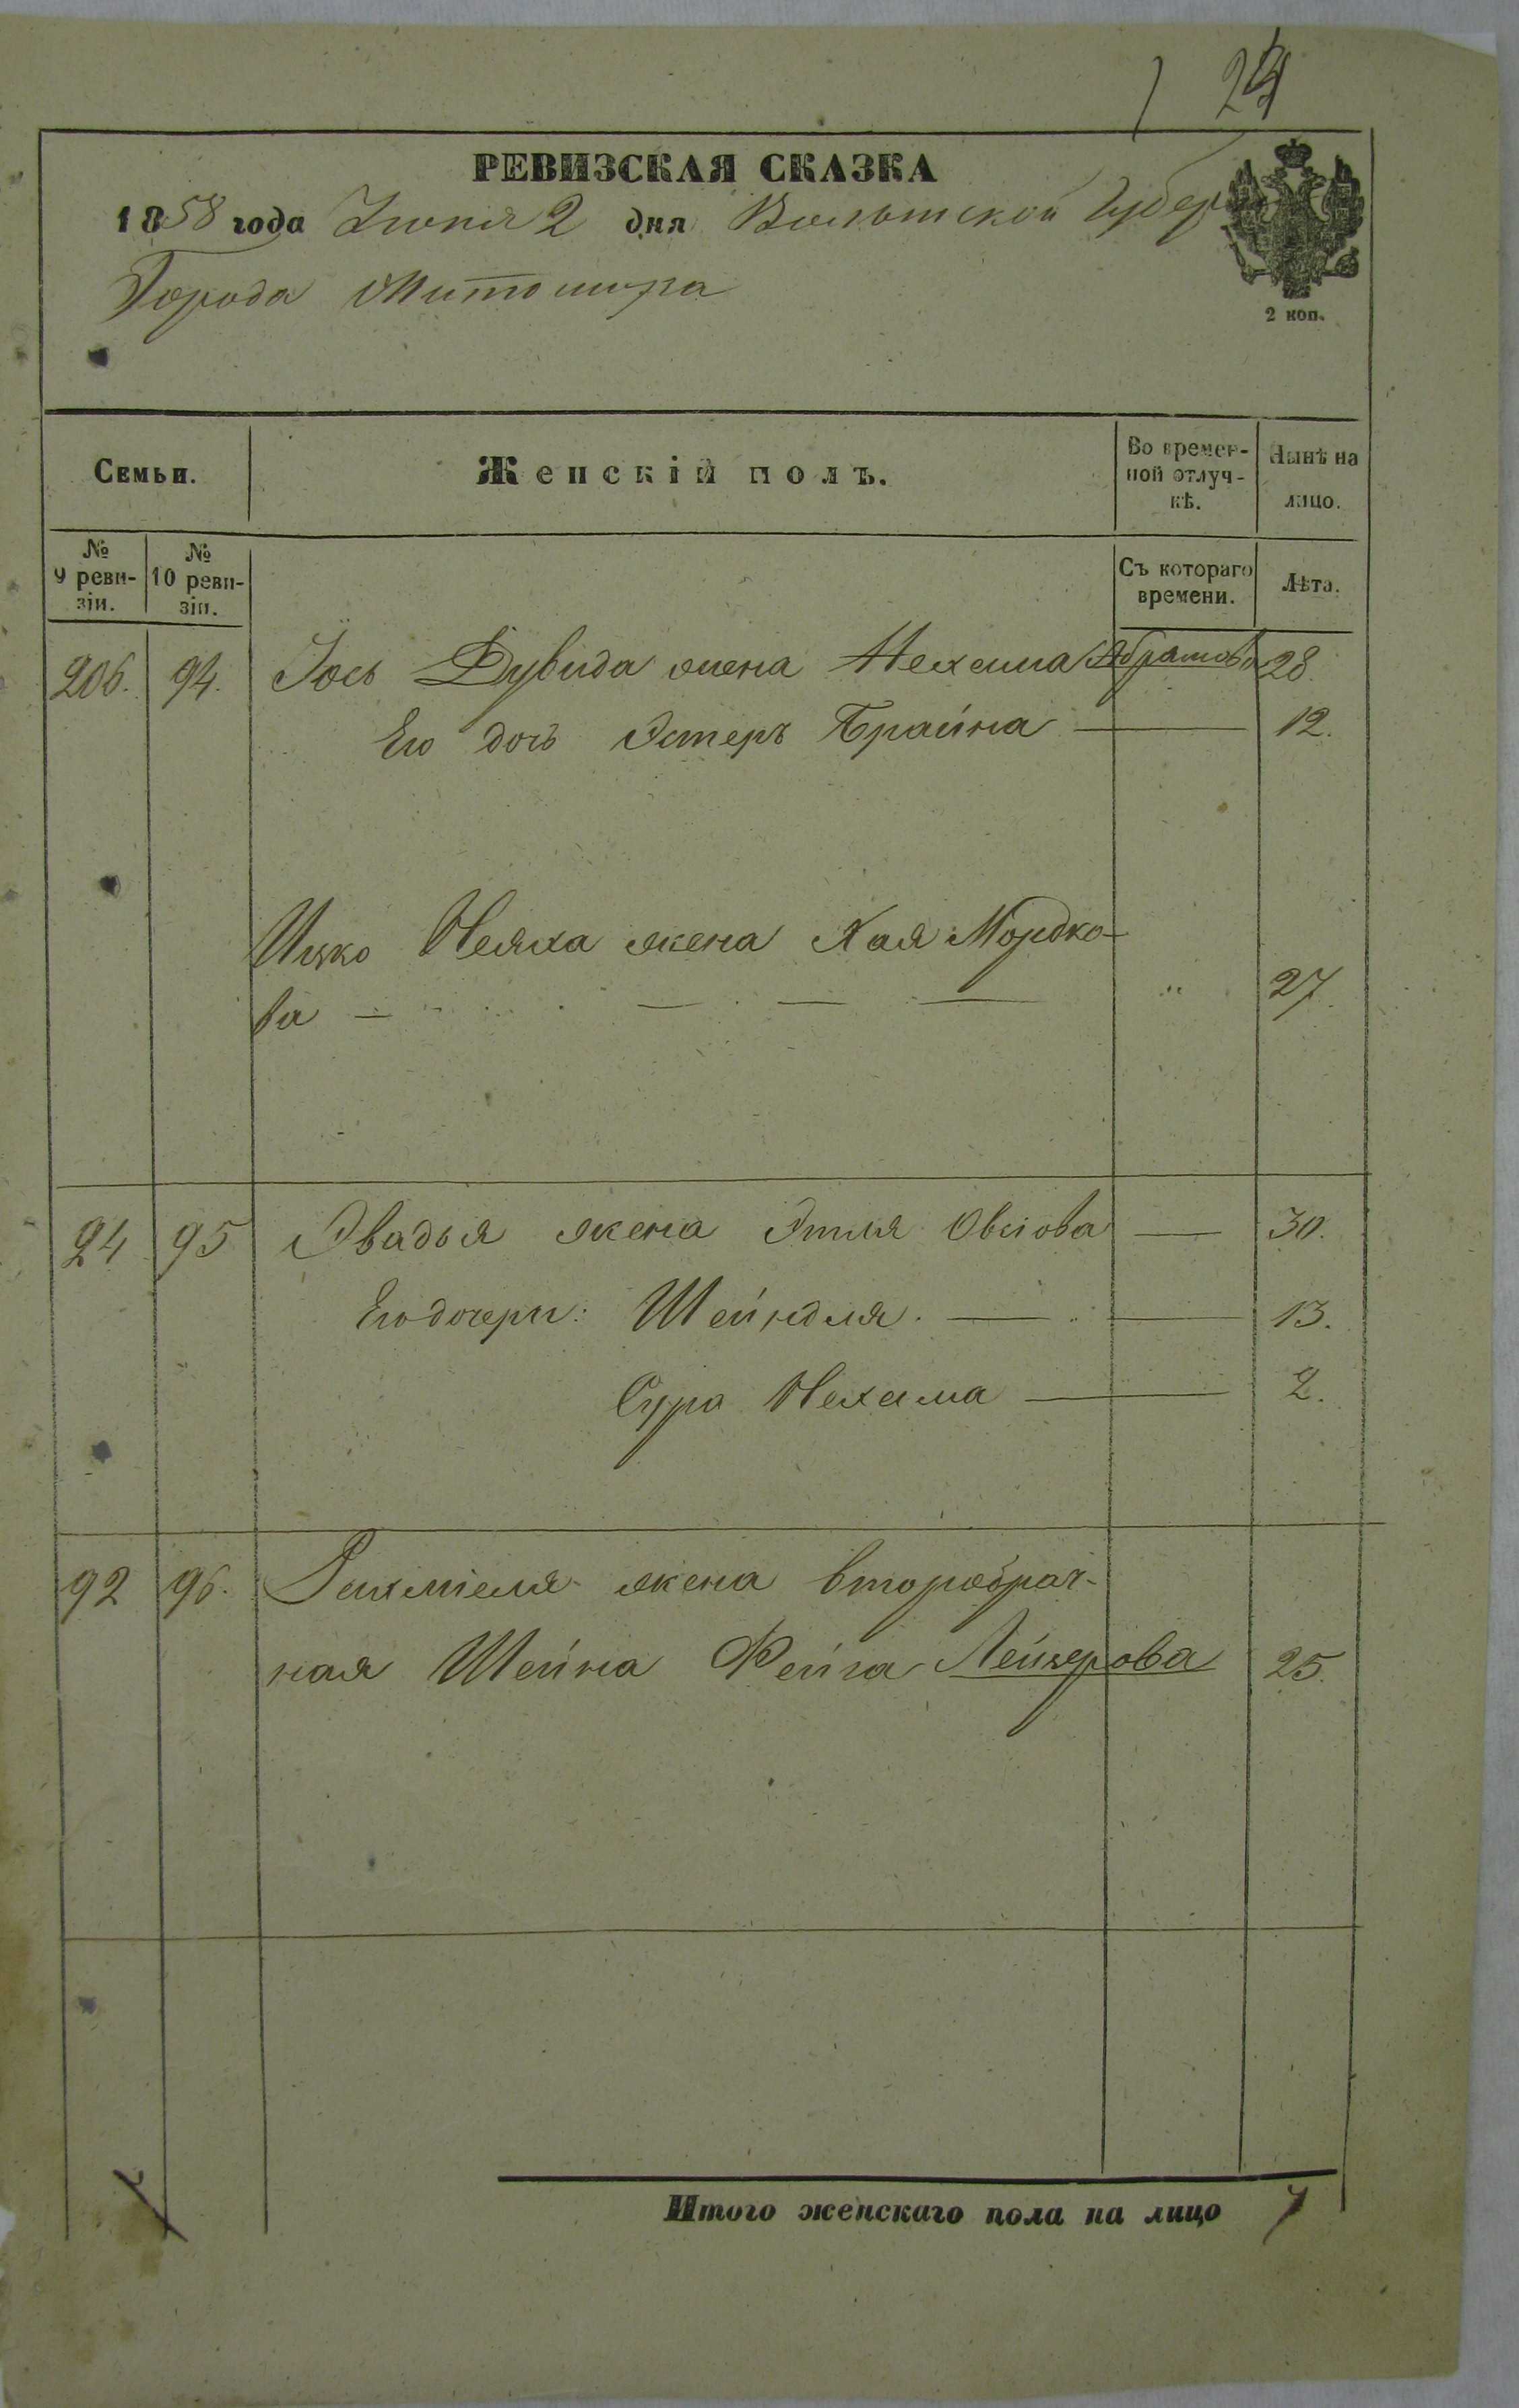 24
РЕВИЗСКАЯ СКАЗКА
1858 года Июня 2 дня Волынской Губер
Города Житомира
2 коп.
Семьи.
Женскій полъ.
Во времен-
ной отлуч-
кѣ.
Нынѣ на
лицо.
№
9 реви-
зіи.
№
10 реви-
зіи.
Съ котораго
времени.
Лѣта.
206. 94. Іось Дувида жена Нехама Абрамова 28.
Его дочь Эстеръ Брайна 12.
Ицко жена Хая Мордко-
ва 27
24 95 Овадья жена Этля Овсіова 30.
Его дочери: Шейндля. 13.
Сура Нехама 2.
92 96. Рахміеля жена второбрач-
ная Шейна Фейга Лейзерова 25.
Итого женскаго пола на лицо 7